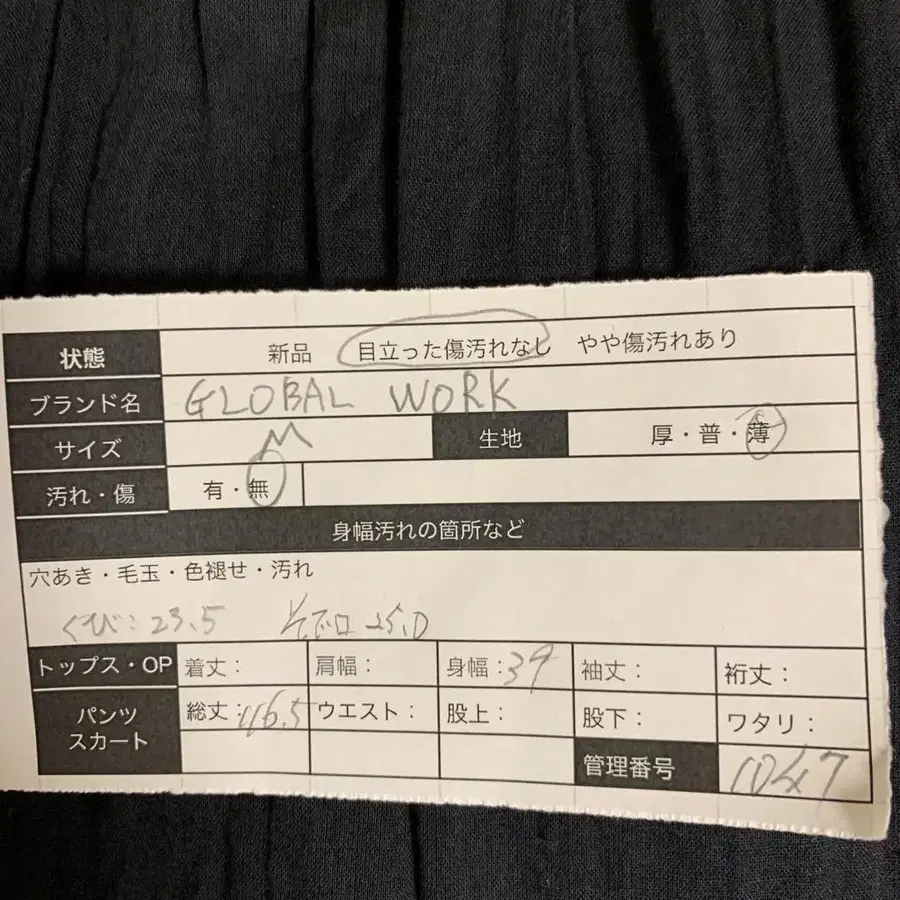 状態 新品 目立った傷汚れなし やや傷汚れあり
ブランド名 GLOBAL WORK
サイズ M 生地 厚・普・薄
汚れ・傷 有・無
身幅汚れの箇所など
穴あき・毛玉・色褪せ・汚れ
くび:23.5 そで口 25.0
トップス・OP 着丈: 肩幅: 身幅:39 袖丈: 裄丈:
パンツ スカート 総丈:116.5 ウエスト: 股上: 股下: ワタリ:
管理番号 1047